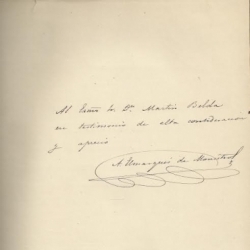 Al Exmo Sr Dn Martin Belda
en testimonio de alta consideracion
y aprecio
El Marques de Monistrol